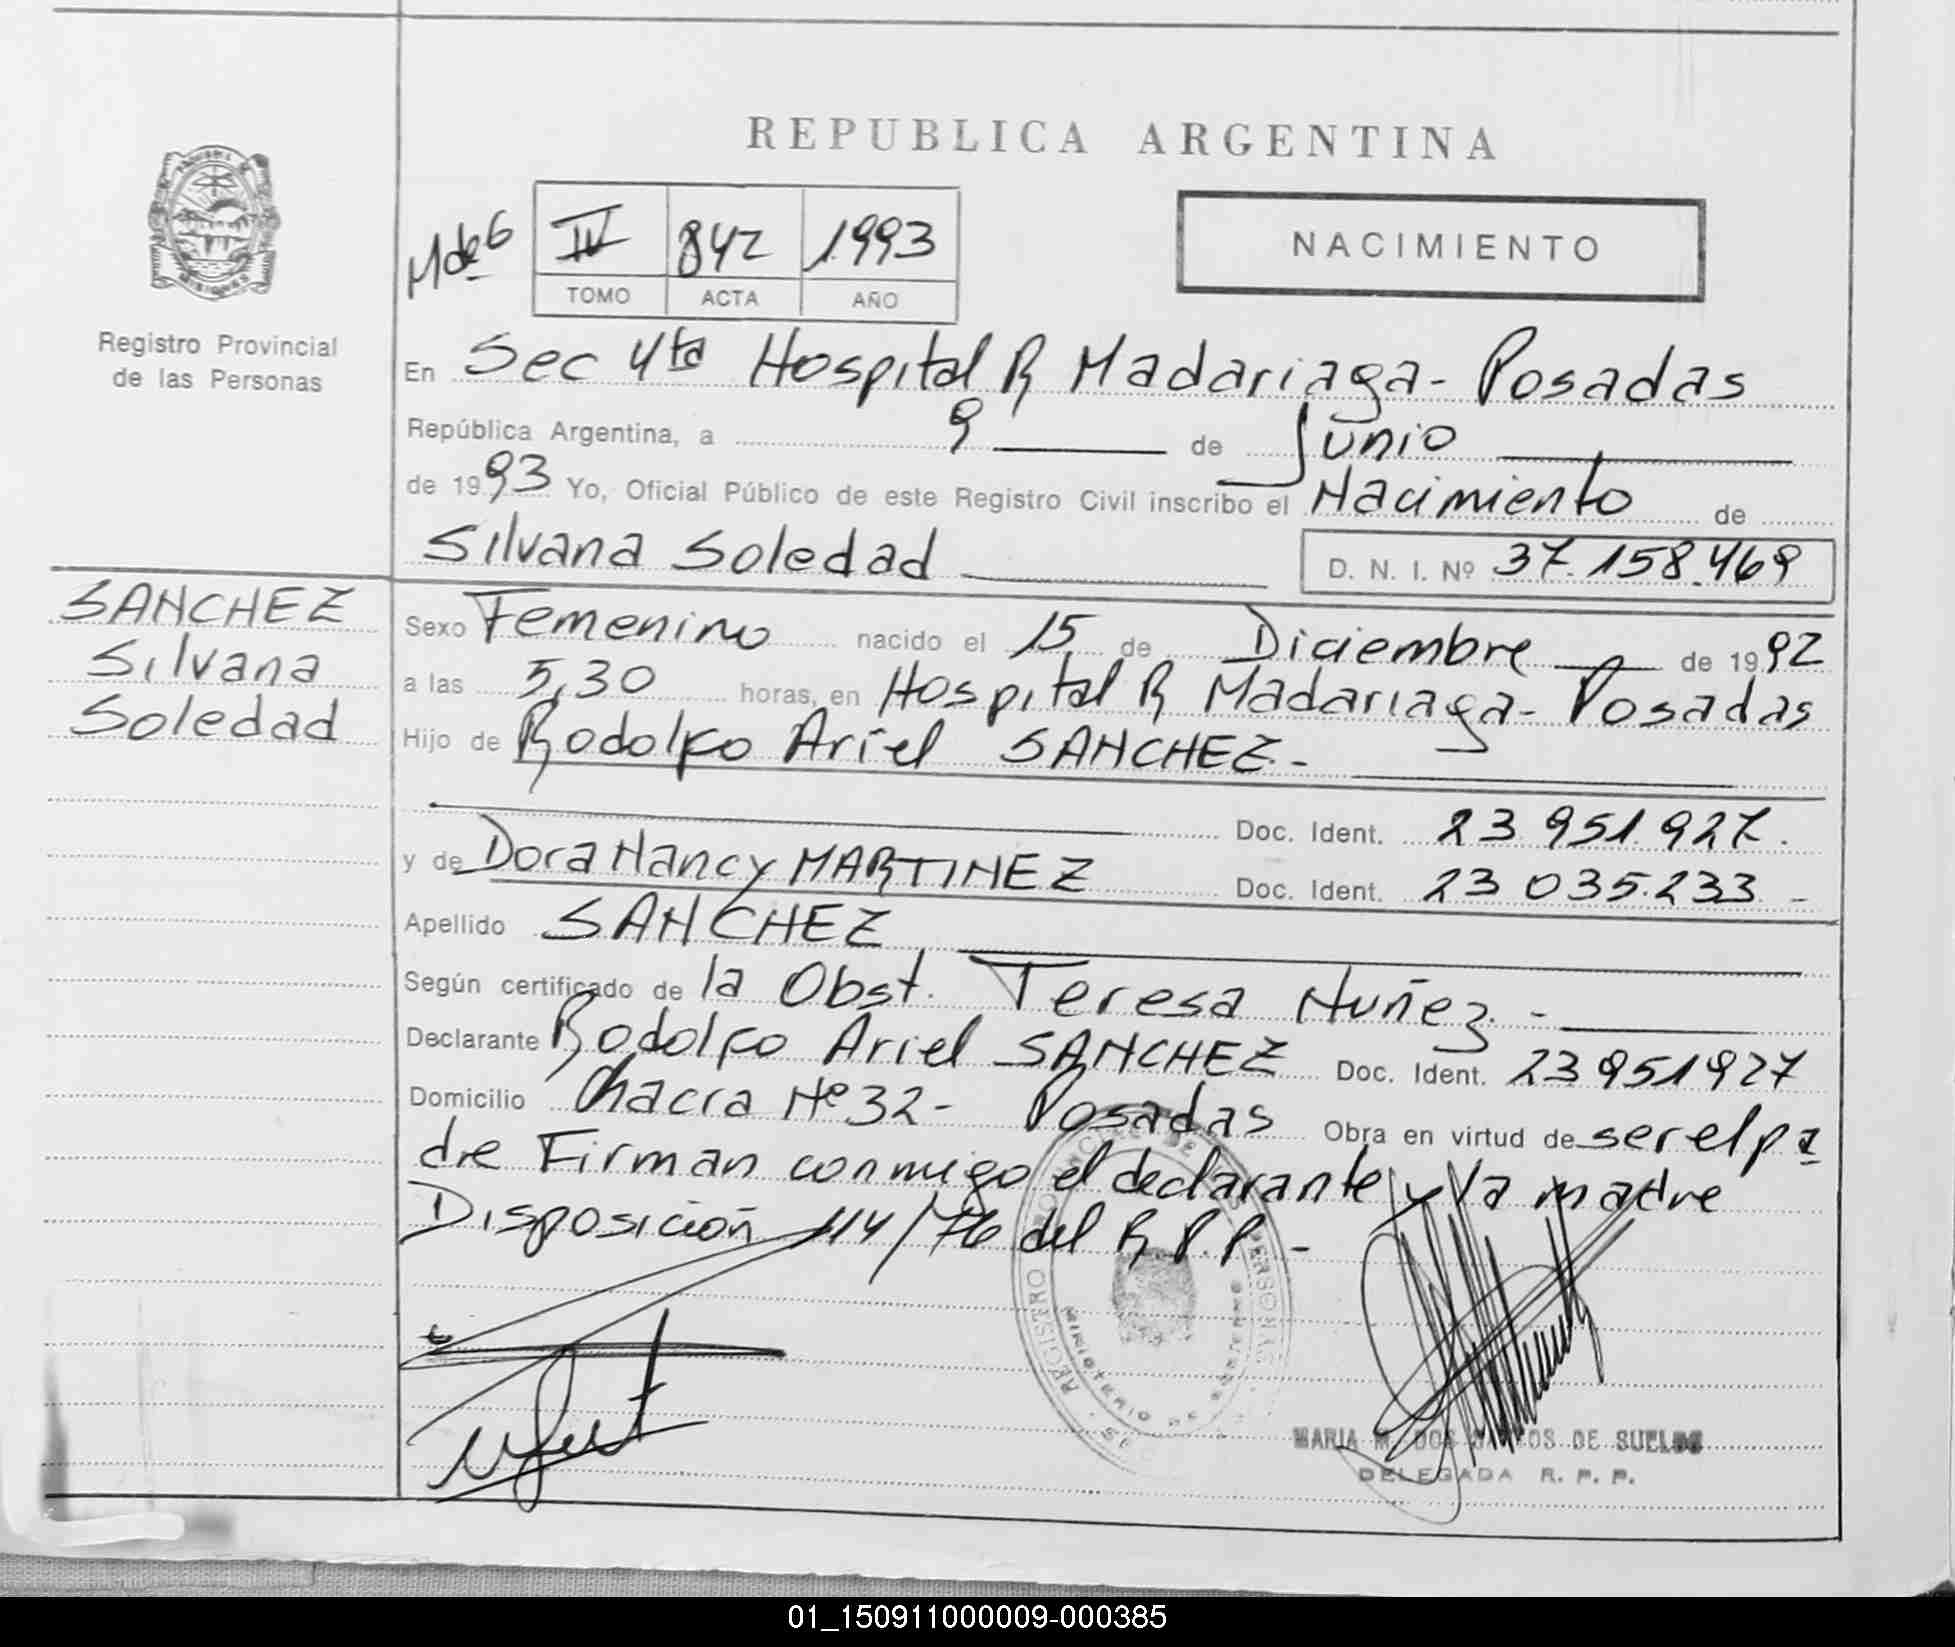 REPUBLICA ARGENTINA
Mde6
IV 842 1993
TOMO ACTA AÑO
NACIMIENTO
Registro Provincial
de las Personas
En Sec 4ta Hospital R Madariaga - Posadas
República Argentina, a 9 de Junio
de 1993 Yo, Oficial Público de este Registro Civil inscribo el Nacimiento de
Silvana Soledad D. N. I. Nº 37.158.469
SANCHEZ
Silvana
Soledad
Sexo Femenino nacido el 15 de Diciembre de 1992
a las 5,30 horas, en Hospital R Madariaga - Posadas
Hijo de Rodolfo Ariel SANCHEZ.-
Doc. Ident. 23.951.927.
y de Dora Nancy MARTINEZ Doc. Ident. 23 035.233 -
Apellido SANCHEZ
Según certificado de la Obst. Teresa Nuñez. -
Declarante Rodolfo Ariel SANCHEZ Doc. Ident. 23951927
Domicilio Chacra Nº 32 - Posadas Obra en virtud de ser el pa
dre Firman conmigo el declarante y la madre
Disposición 414/76 del R.P.P. -
REGISTRO PROVINCIAL DE LAS PERSONAS
MINISTERIO DE GOBIERNO
MARIA M. DOS SANTOS DE SUELDO
DELEGADA R. P. P.
01_150911000009-000385